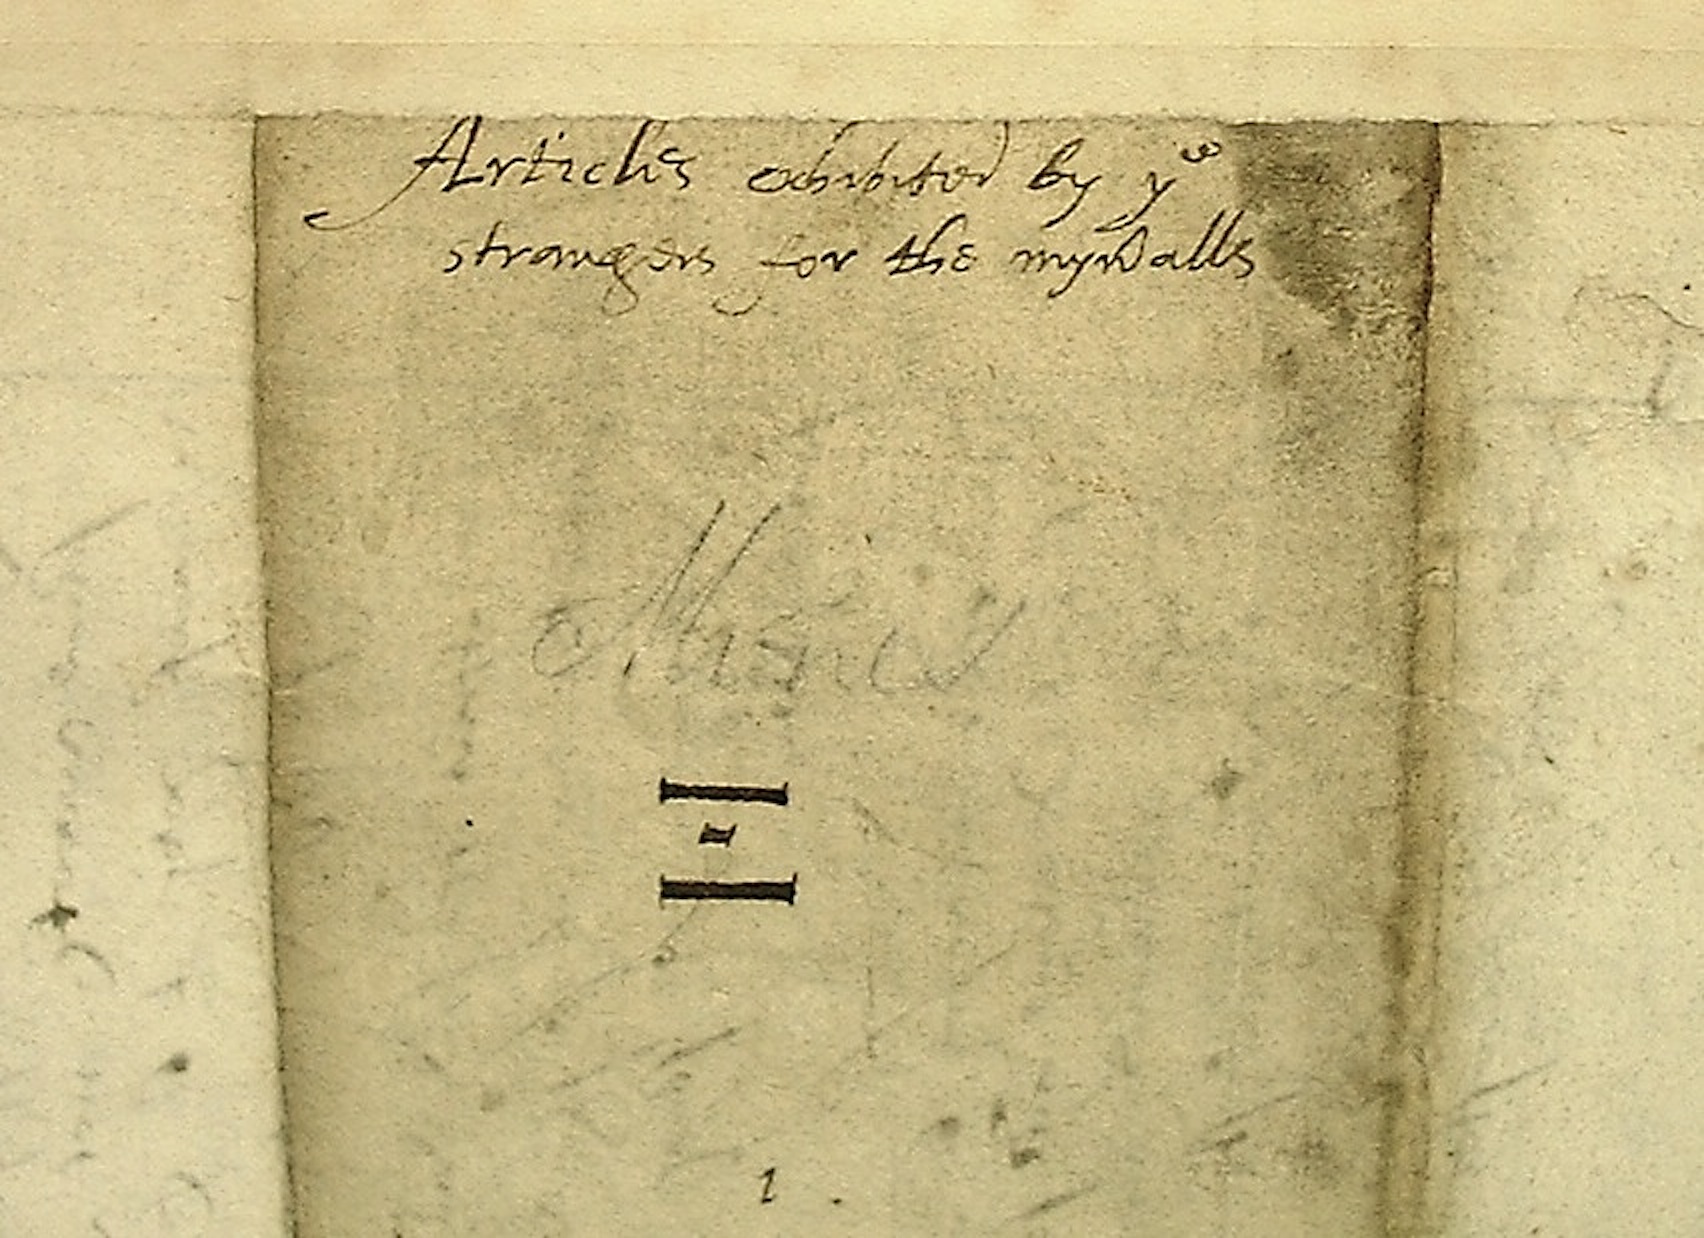 Articles exhibited by yᵉ
strangers for the mynralls
1 .